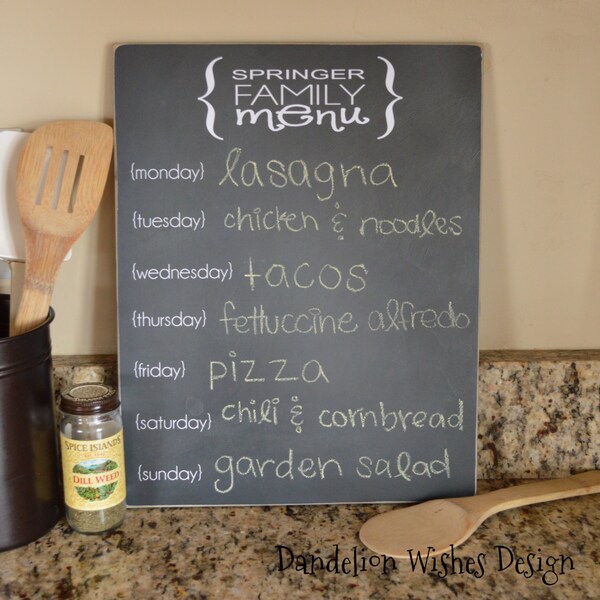 SPRINGER
FAMILY
menu
{monday} lasagna
{tuesday} chicken & noodles
{wednesday} tacos
{thursday} fettuccine alfredo
{friday} pizza
{saturday} chili & cornbread
{sunday} garden salad
SPICE ISLANDS
DILL WEED
Dandelion Wishes Design